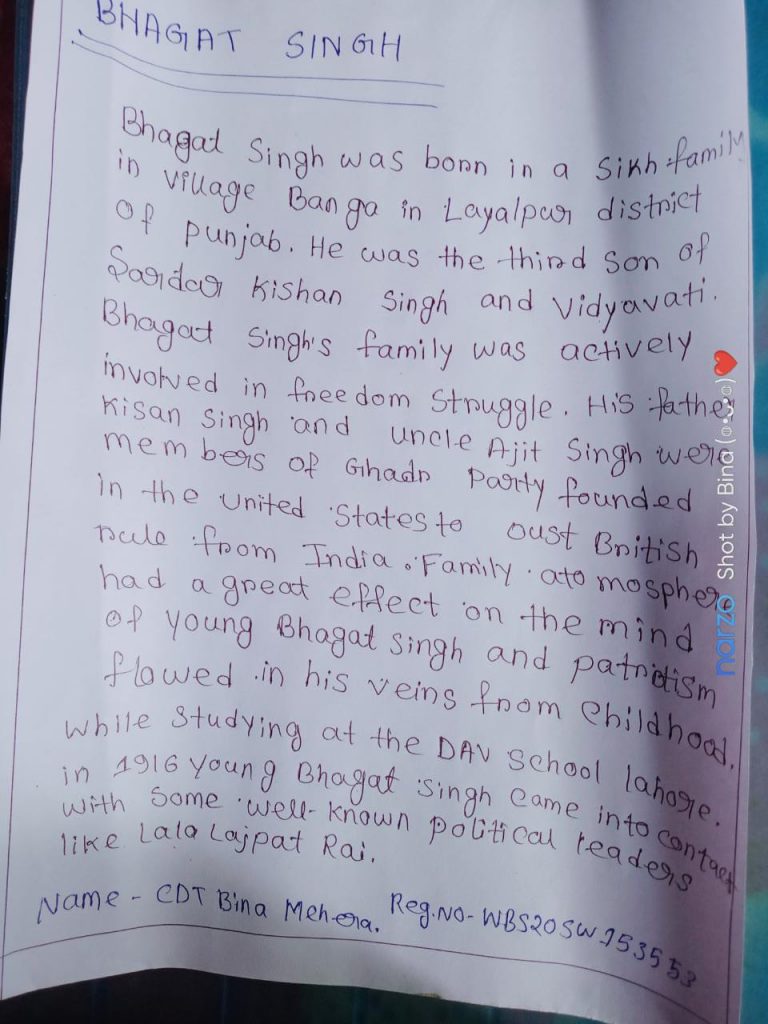 BHAGAT SINGH
Bhagat Singh was born in a Sikh family
in village Banga in Layalpur district
of punjab. He was the third son of
Sardar Kishan Singh and Vidyavati.
Bhagat Singh's family was actively
involved in freedom struggle. His father
Kisan Singh and uncle Ajit Singh were
members of Ghadr Party founded
in the united States to oust British
rule from India. Family atomosphere
had a great effect on the mind
of young Bhagat singh and patriotism
flowed in his veins from childhood.
While studying at the DAV school lahore.
in 1916 young Bhagat singh came into contact
with some well-known political leaders
like Lala Lajpat Rai.
Name - CDT Bina Mehera. Reg.NO- WBS20SW153553
narzo Shot by Bina (◕ᴗ◕)❤